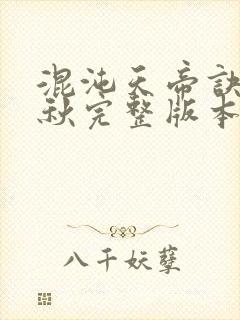 混沌天帝诀
秋完整版本
八千妖孽